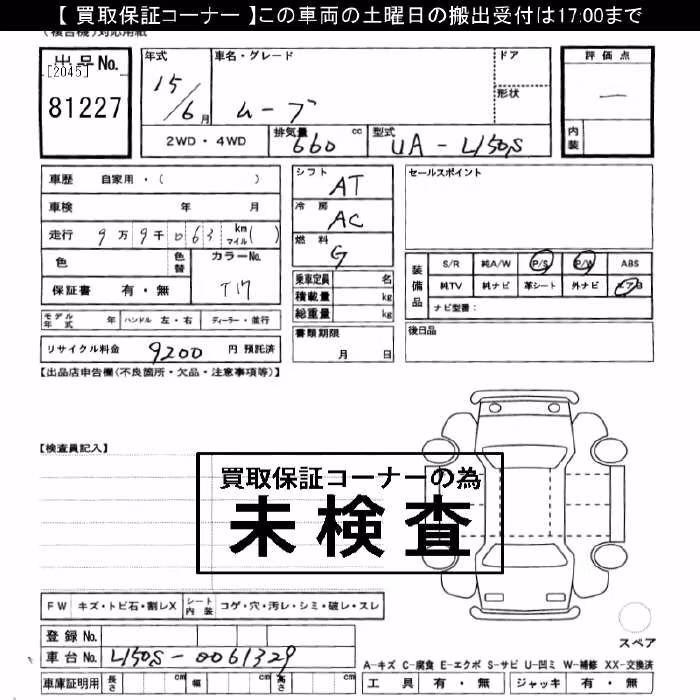 【 買取保証コーナー 】この車両の土曜日の搬出受付は17:00まで
出品No.
[2045]
81227
年式 15/6月
車名・グレード ムーブ
ドア
形状
評価点 ―
内装
2WD・4WD
排気量 660 cc
型式 UA-L150S
車歴 自家用・( )
車検 年 月
走行 9万9千063 km マイル( )
色
色替
カラーNo. T17
保証書 有・無
モデル年式 年 ハンドル 左・右 ディーラー・並行
リサイクル料金 9200 円 預託済
シフト AT
冷房 AC
燃料 G
乗車定員 名
積載量 kg
総重量 kg
書類期限 月 日
セールスポイント
装備品
S/R 純A/W P/S P/W ABS
純TV 純ナビ 革シート 外ナビ エアB
ナビ型番:
後日品
【出品店申告欄(不良箇所・欠品・注意事項等)】
【検査員記入】
買取保証コーナーの為
未検査
FW キズ・トビ石・割レX シート内装 コゲ・穴・汚レ・シミ・破レ・スレ
スペア
登録No.
車台No. L150S-0061329
車庫証明用 長さ cm 幅 cm 高さ cm
A-キズ C-腐食 E-エクボ S-サビ U-凹ミ W-補修 XX-交換済
工具 有・無 ジャッキ 有・無